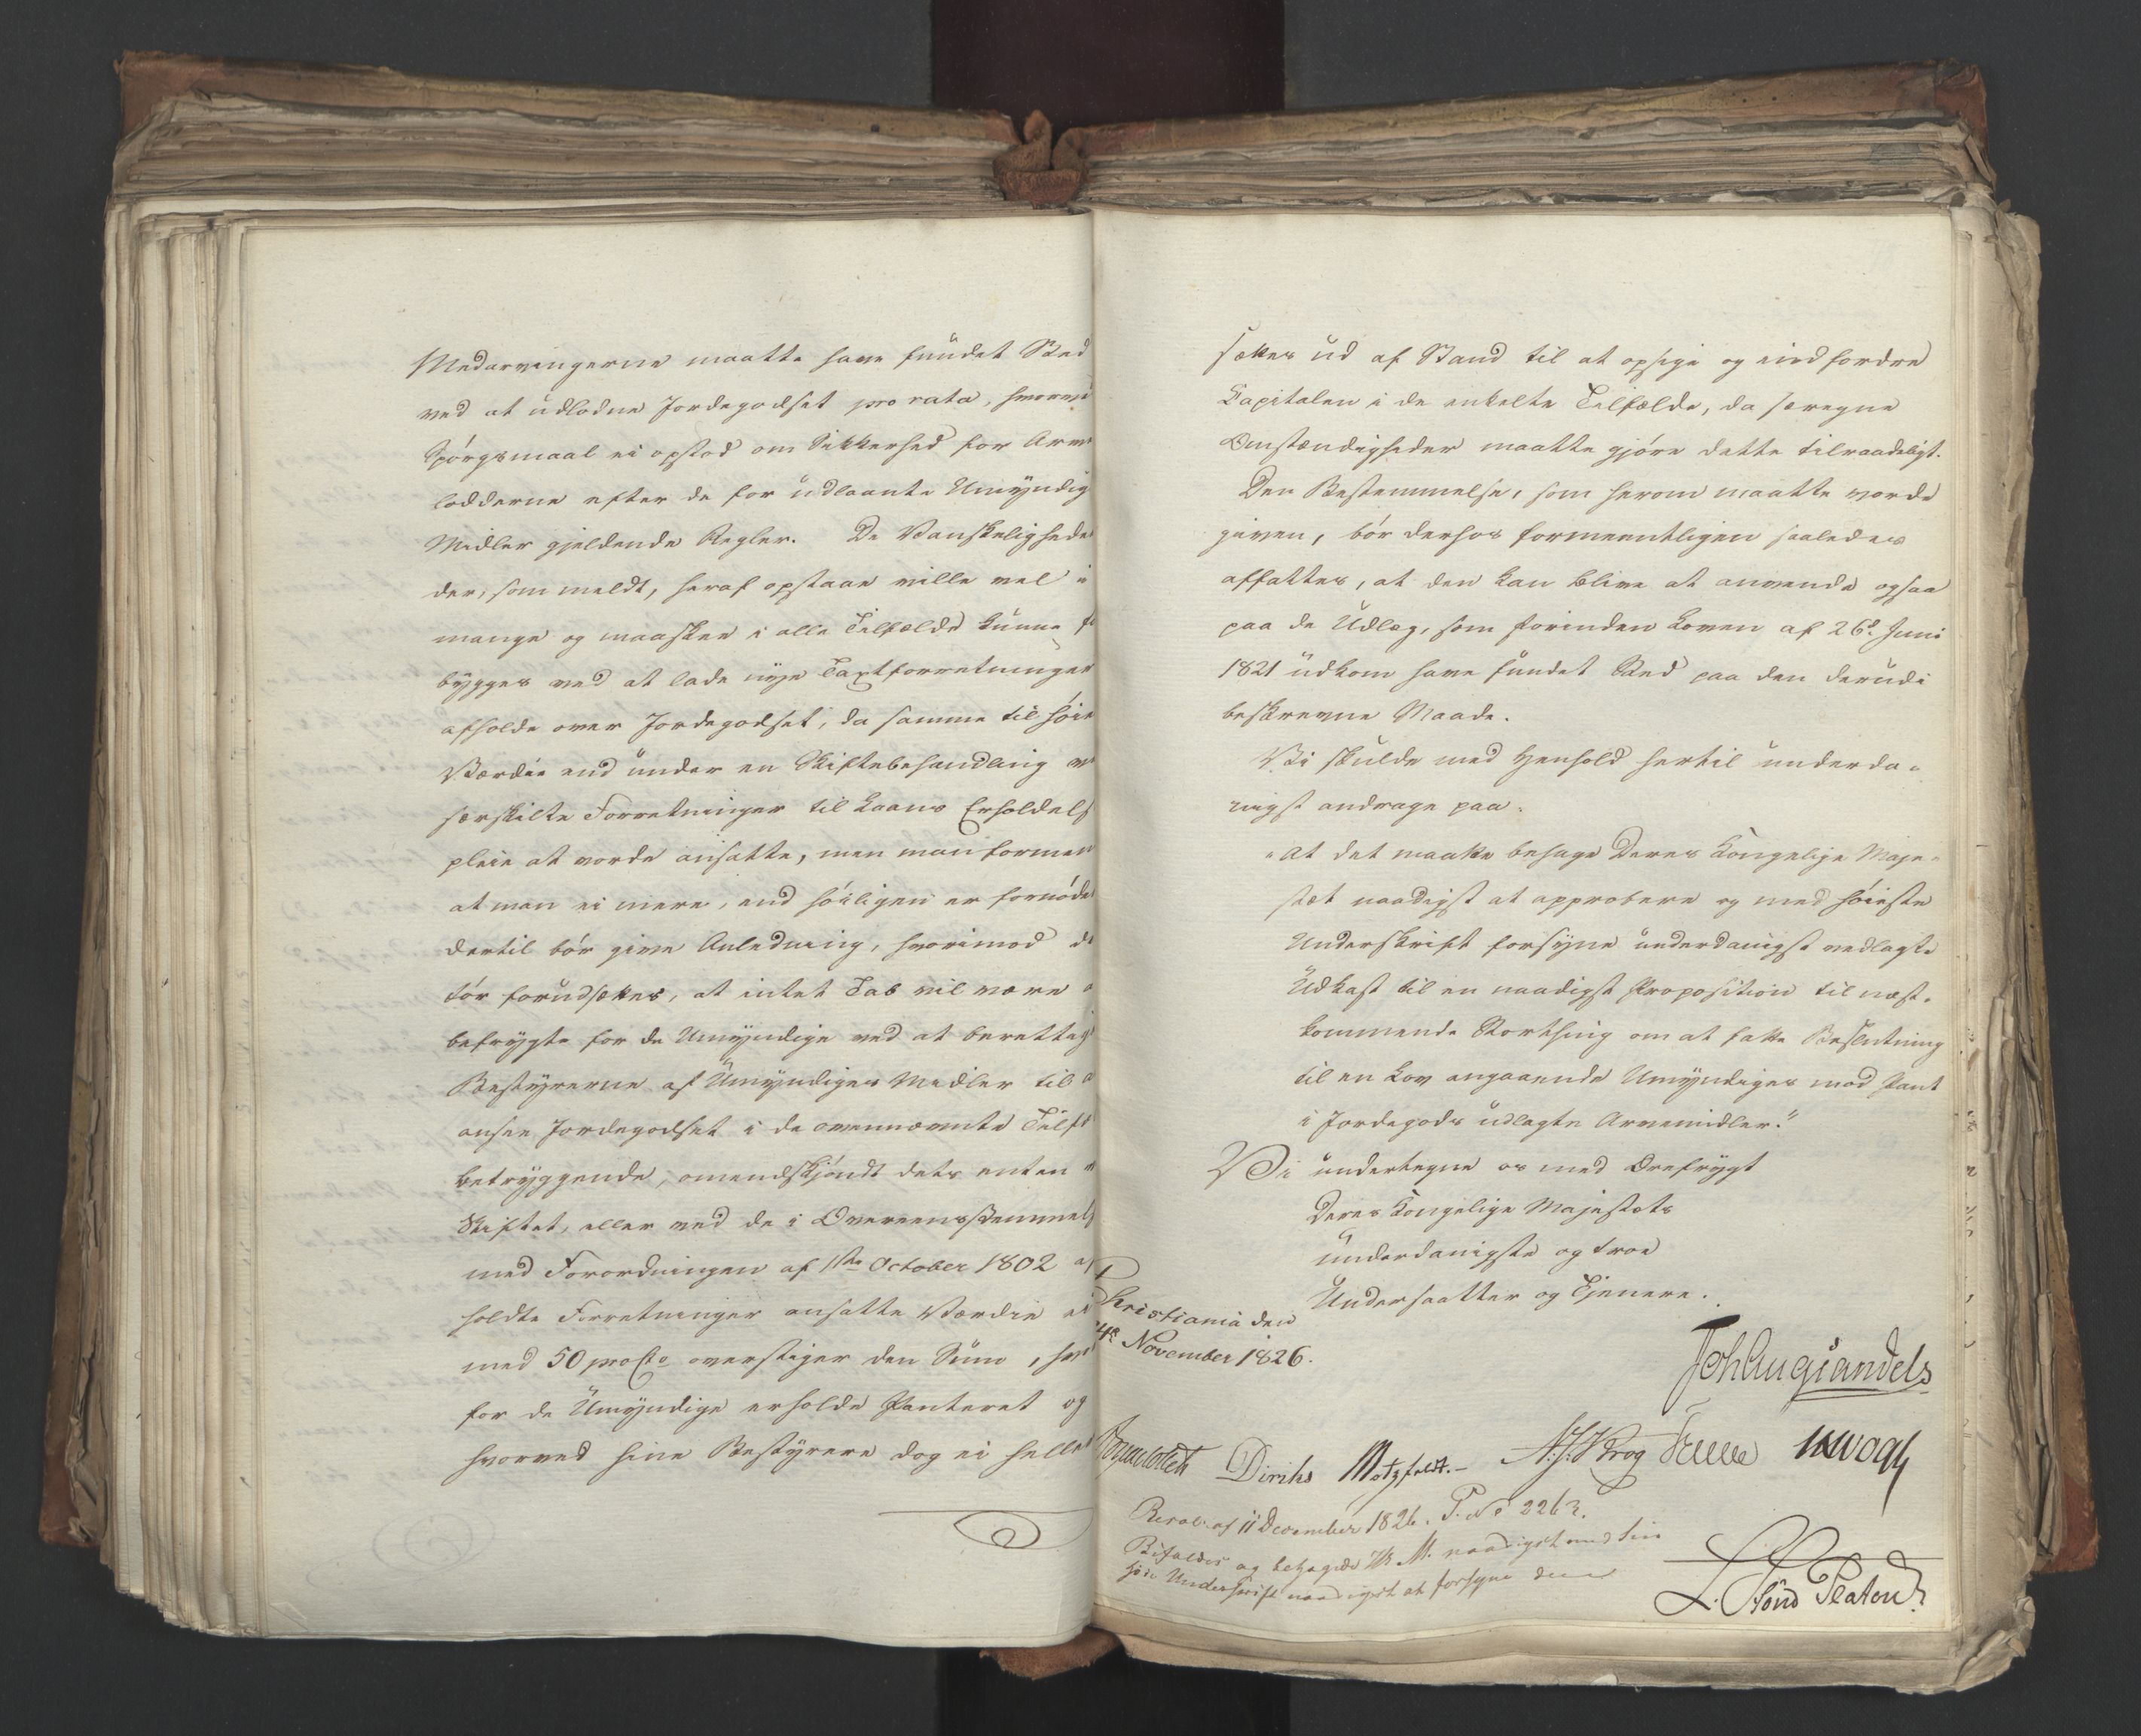 Medarvingerne maatte have fundet Sted
ved at udlodne Jordegodset pro rata, hvorved
Spörgsmaal ei opstod om Sikkerhed for Arve
lodderne efter de for udlaante Umyndig
Midler gjeldende Regler. De Vanskelighede
der, som meldt, heraf opstaae ville vel i
mange og maaskee i alle Tilfælde kunne fo
bygges ved at lade nye Taxtforretninger
afholde over Jordegodset, da samme til höie
Værdie end under en Skiftebehandling ve
særskilte Forretninger til Laans Erholdels
pleie at vorde ansatte, men man formen
at man ei mere, end höiligen er fornöde
dertil bör give Anledning, hvorimod de
tör forudsættes, at intet Tab vil være a
befrygte for de Umyndige ved at berettig
Bestyrerne af Umyndiges Midler til a
ansee Jordegodset i de ovennævnte Tilfæ
betryggende, omendskjöndt dets enten
Skiftet, eller ved de i Overeensstemmels
med Forordningen af 1ste October 1802 af
holdte Forretninger ansatte Værdie ei
med 50 procto overstiger den Sum, hvo
for de Umyndige erholde Panteret og
hvorved hine Bestyrere dog ei heller
sættes ud af Stand til at opsige og indfordre
Capitalen i de enkelte Tilfælde, da særegne
Omstændigheder maatte gjöre dette tilraadeligt.
Den Bestemmelse, som herom maatte vorde
given, bör derhos formeentligen saaledes
affattes, at den kan blive at anvende ogsaa
paa de Udlæg, som forinden Loven af 26d Juni
1821 udkom have fundet Sted paa den derudi
beskrevne Maade.
Vi skulde med Henhold hertil underda-
nigst andrage paa:
"At det maatte behage Deres Kongelige Maje-
stæt naadigst at approbere og med höieste
Underskrift forsyne underdanigst vedlagte
Udkast til en naadigst Proposition til næst-
kommende Storthing om at fatte Beslutning
til en Lov angaaende Umyndiges mod Pant
i Jordegods udlagte Arvemidler."
Vi undertegne os med Ærefrygt
Deres Kongelige Majestæts
underdanigste og troe
Undersaatter og Tjenere.
Christiania den
4de November 1826.
Joh Aug Sandels
Collett Diriks Motzfeldt. A. J. Krog Treschow Vogt
Resol: af 11 December 1826. P. No 2262.
Bifaldes og behagede H. M. naadigst med Sin
höie Underskrift naadigst at forsyne den
L. Stoud Platou